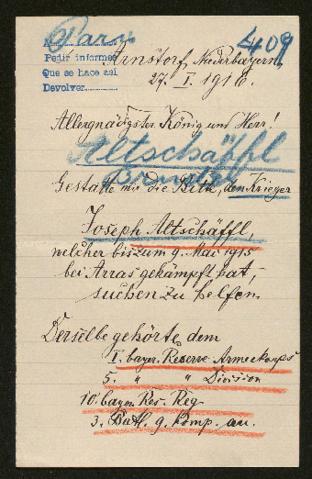 Paris
409
Pedir informes
Que se hace así
Devolver
Arnstorf, Niederbayern,
27. I. 1916.
Allergnädigster König und Herr!
Altschäffl
Gestatte mir die Bitte, den Krieger
Joseph Altschäffl,
welcher bis zum 9. Mai 1915
bei Arras gekämpft hat,
suchen zu helfen.
Derselbe gehörte dem
I. bayer. Reserve Armeekorps
5. " " Division
10. bayer. Res. Reg.
3. Batl. 9. Komp. an.